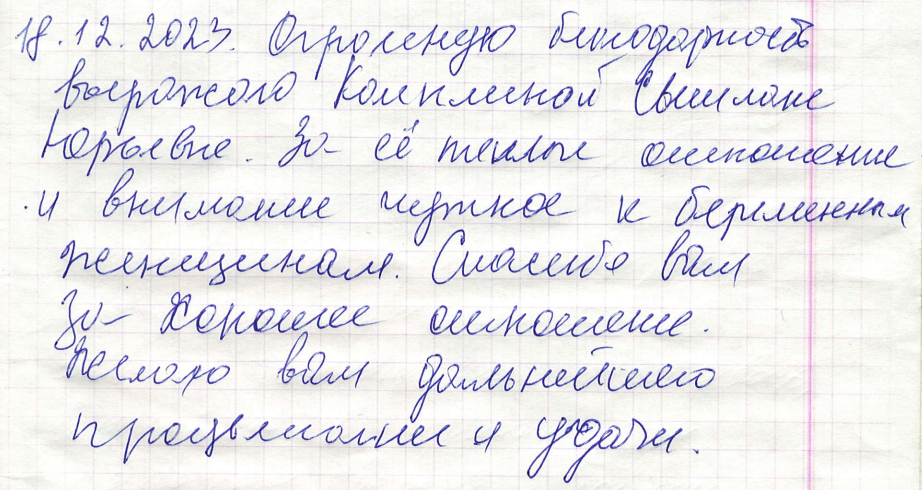 18.12.2023. Огромную благодарность
выражаю Комплиной Светлане
Юрьевне. За её теплые отношение
и внимание нужное к беременным
женщинам. Спасибо вам
за хорошее отношение.
Желаю вам дальнейшего
процветание и удачи.